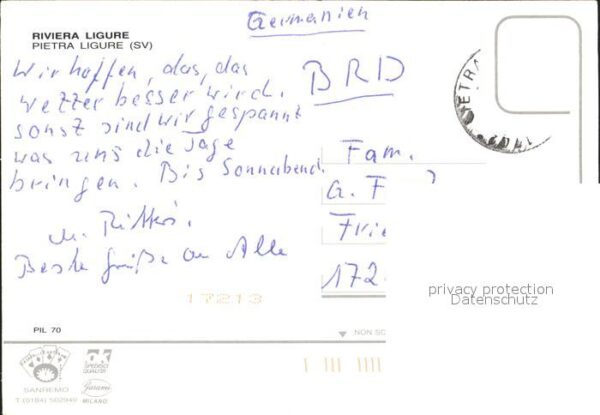 RIVIERA LIGURE
PIETRA LIGURE (SV)
Germanien
BRD
Wir hoffen, das, das
Wetter besser wird.
sonst sind wir gespannt
was uns die Tage
bringen. Bis Sonnabend.
Beste Grüße an Alle
Fam.
G. F
Frie
172
17213
privacy protection
Datenschutz
PIL 70
NON SC
SPEDISCI
QUALITA'
SANREMO
T. (0184) 502949
Garami
MILANO